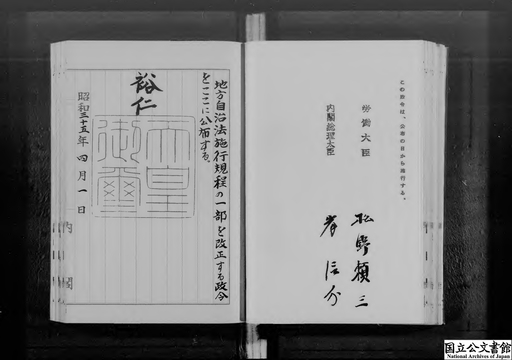 この政令は、公布の日から施行する。
労働大臣
松野頼三
内閣総理大臣
岸信介
地方自治法施行規程の一部を改正する政令
をここに公布する。
裕仁
天皇
御璽
昭和三十五年四月一日
内閣
国立公文書館
National Archives of Japan